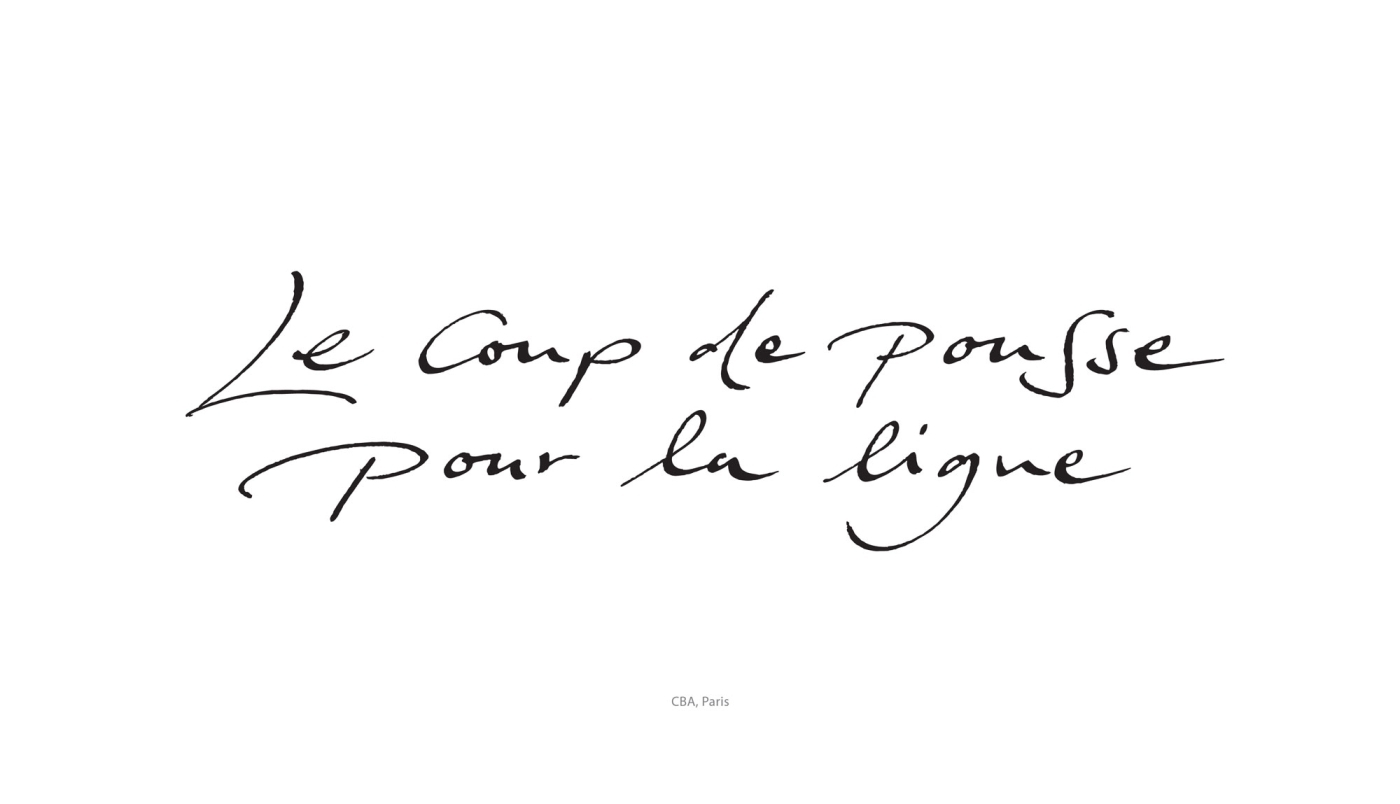 Le Coup de pousse
pour la ligne
CBA, Paris